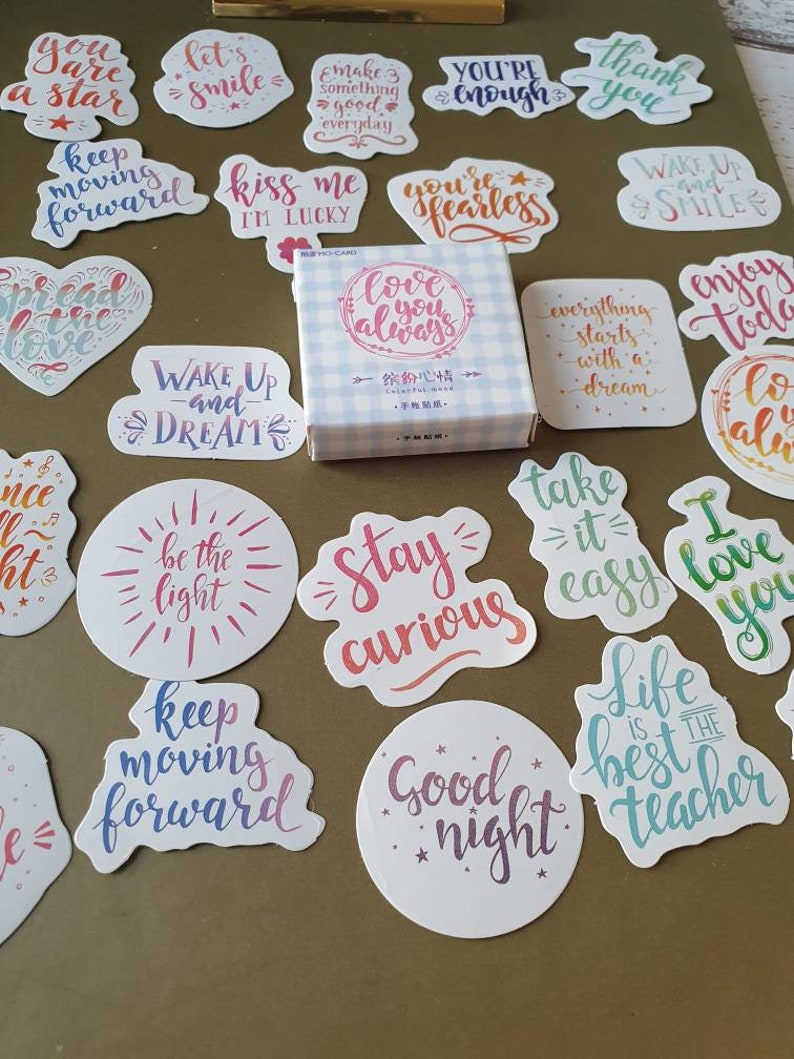 you
are
a star
let's
smile
make
something
good
everyday
YOU'RE
enough
thank
you
keep
moving
forward
kiss me
I'M LUCKY
you're
fearless
WAKE UP
and
SMILE
spread
the
love
WAKE UP
and
DREAM
陌家 MO·CARD
love
you
always
缤纷心情
Colorful mood
·手帐贴纸·
·手帐贴纸·
everything
starts
with a
dream
enjoy
today
be the
light
stay
curious
take
it
easy
I
love
you
keep
moving
forward
Good
night
Life
IS THE
best
teacher